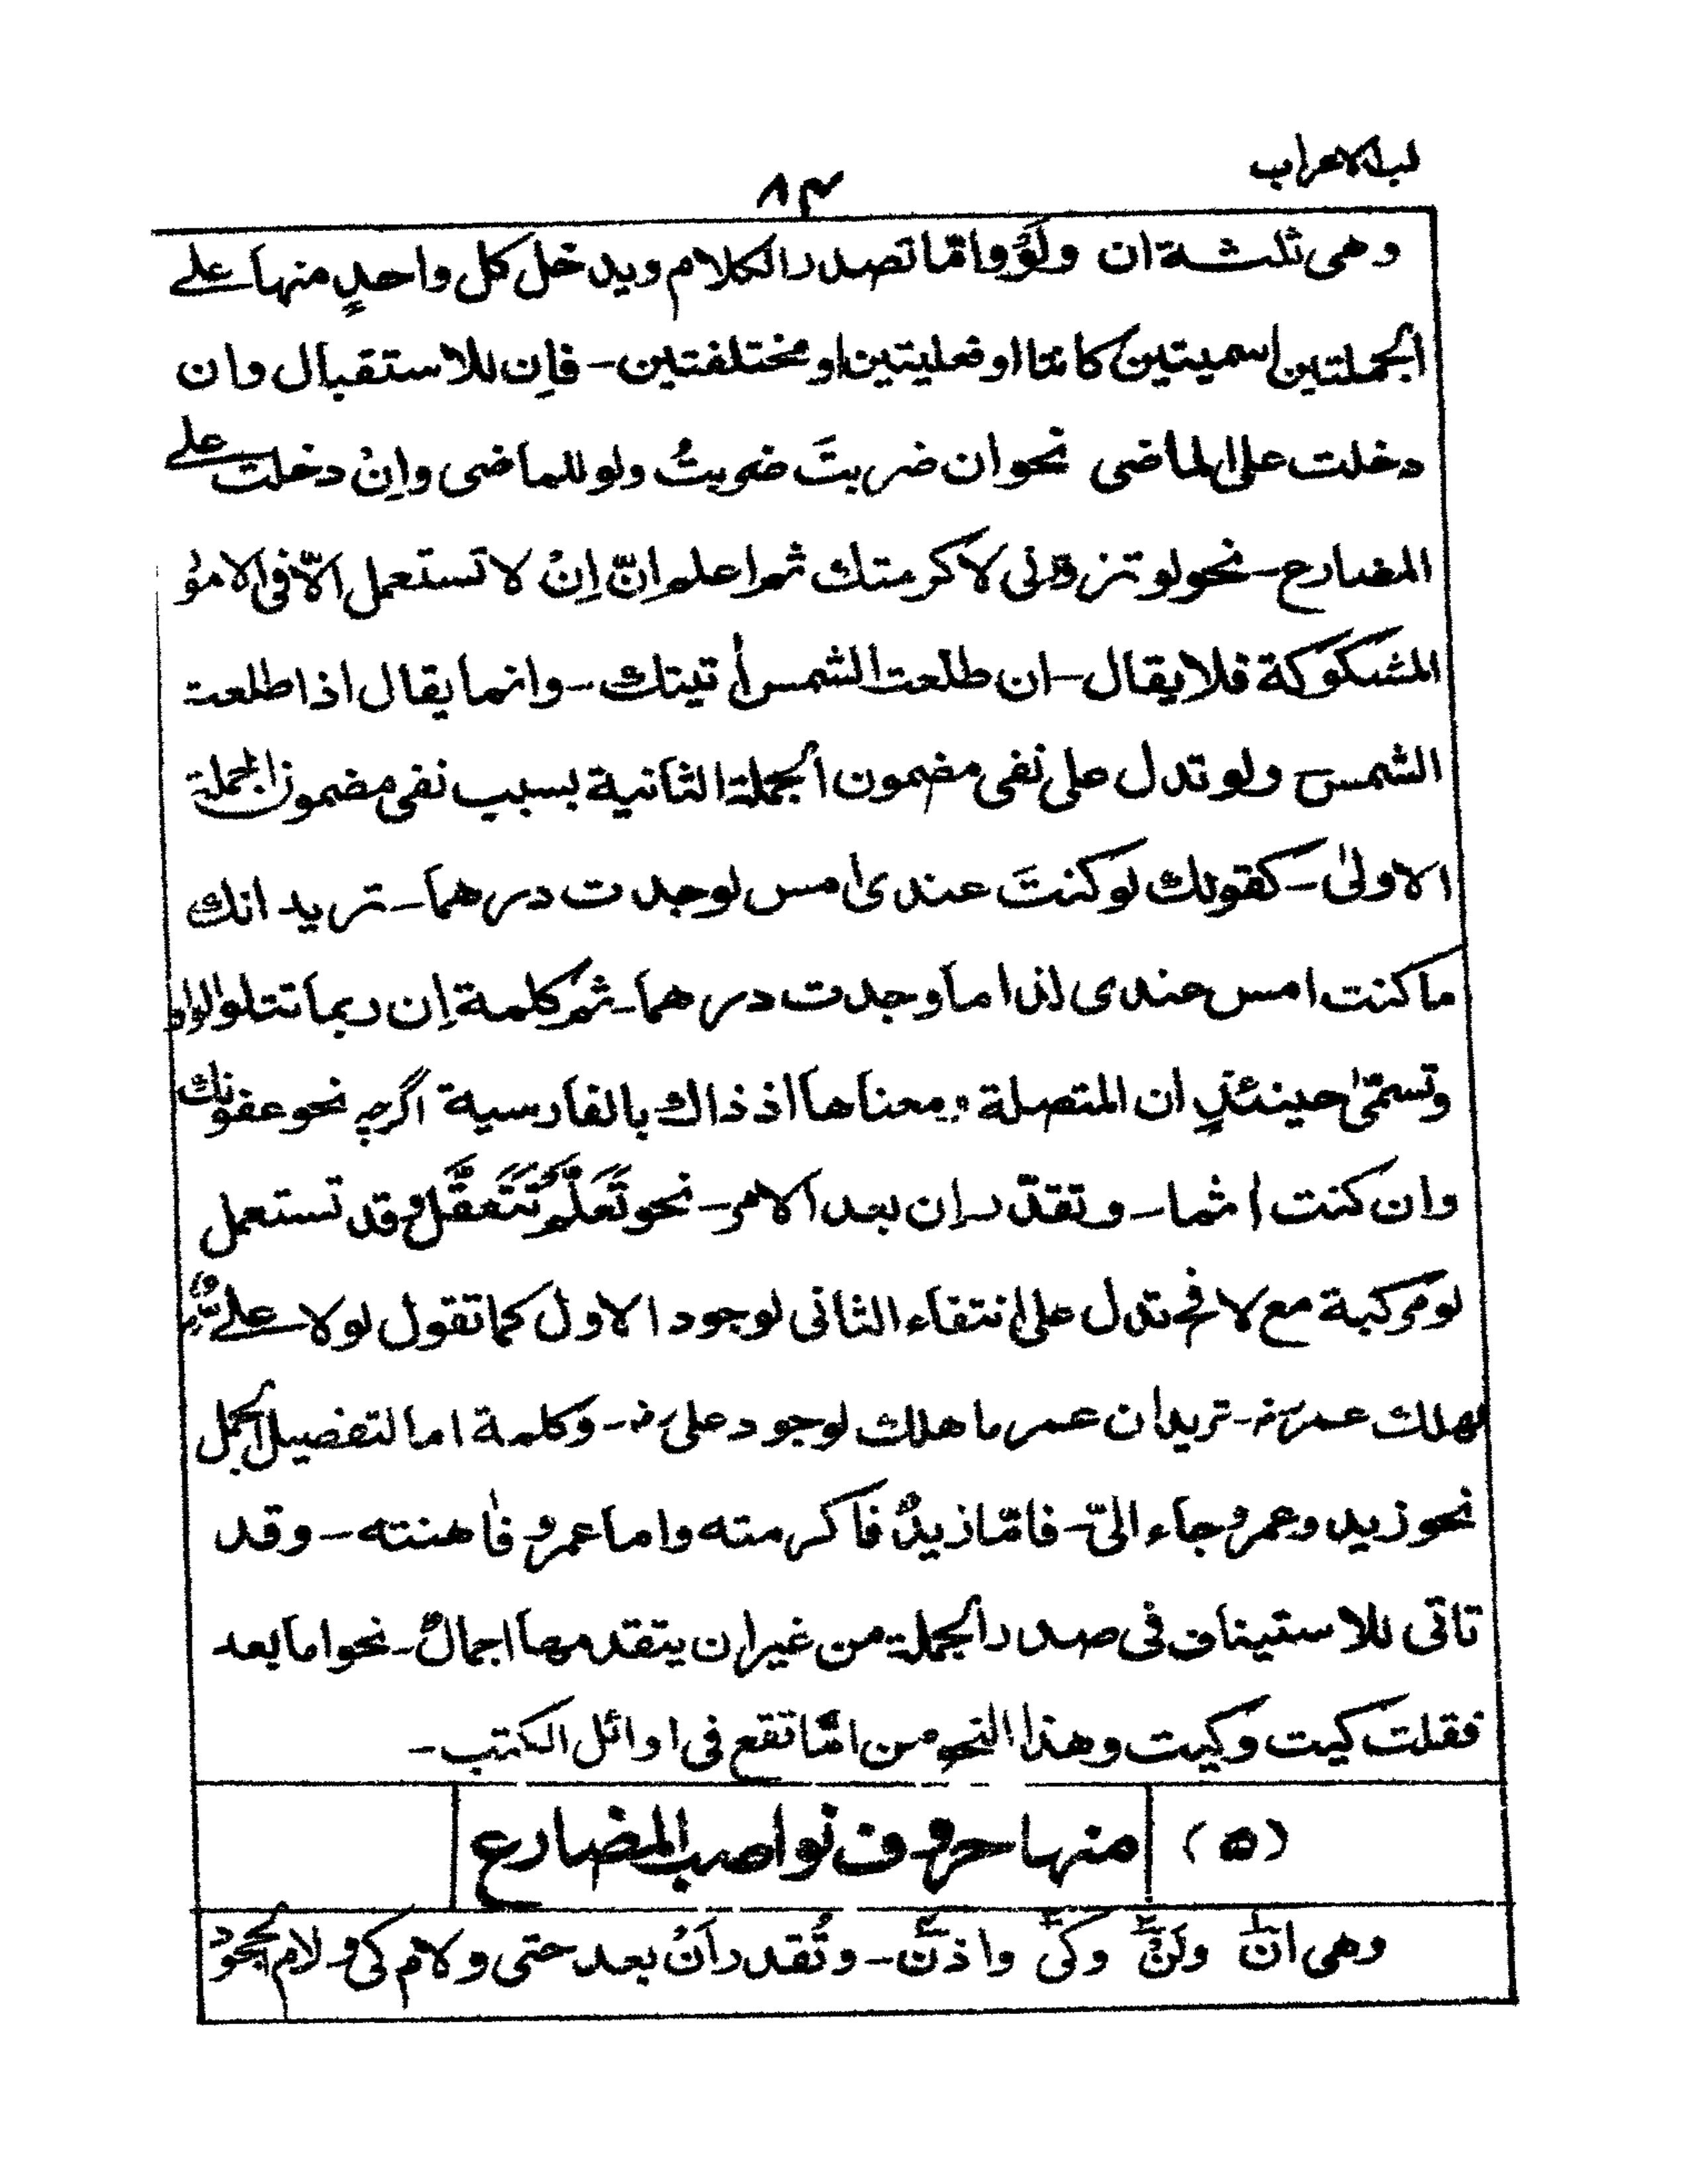 لب الاعراب
٨٤
وهى ثلثة ان ولَوْ وامّا تصدر الكلام ويدخل كل واحدٍ منها على
الجملتين اسميتين كانتا او فعليتين او مختلفتين - فاِن للاستقبال وان
دخلت على الماضى نحو ان ضربتَ ضربتُ ولو للماضى واِنْ دخلت على
المضارع - نحو لو تزورنى لاكرمتك ثم اعلم انّ اِنْ لا تستعمل الّا فى الامور
المشكوكة فلا يقال - ان طلعت الشمس أتيتك - وانما يقال اذا طلعت
الشمس ولو تدل على نفى مضمون الجملة الثانية بسبب نفى مضمون الجملة
الاولىٰ - كقولك لو كنتَ عندى امس لوجدت درهما - تريد انك
ما كنت امس عندى لذا ما وجدت درهما - ثم كلمة اِن ربما تتلو الواو
وتسمّىٰ حينئذٍ ان المتصلة ومعناها اذ ذاك بالفارسية اگرچہ نحو عفوتك
وان كنت اٰثما - وتقدّر اِن بعد الامر - نحو تَعَلَّمْ تَتَعَقَّلْ وقد تستعمل
لو مركبة مع لا فح تدل على انتفاء الثانى لوجود الاول كما تقول لولا علىٌّ
لهلك عمرؓ - تريد ان عمر ما هلك لوجود علىؓ - وكلمة اما لتفصيل المجمل
نحو زيد وعمرو جاء الىّ - فامّا زيدٌ فاكرمته واما عمرو فاهنته - وقد
تاتى للاستيناف فى صدر الجملة من غير ان يتقدمها اجمالٌ - نحو اما بعد
فقلت كيت وكيت وهذا النحو من امّا تقع فى اوائل الكتب -
(٥) منها حروف نواصب المضارع
وهى انْ ولَنْ وكَىْ واذنْ - وتُقدر اَنْ بعد حتى ولام كى ولام الجحود